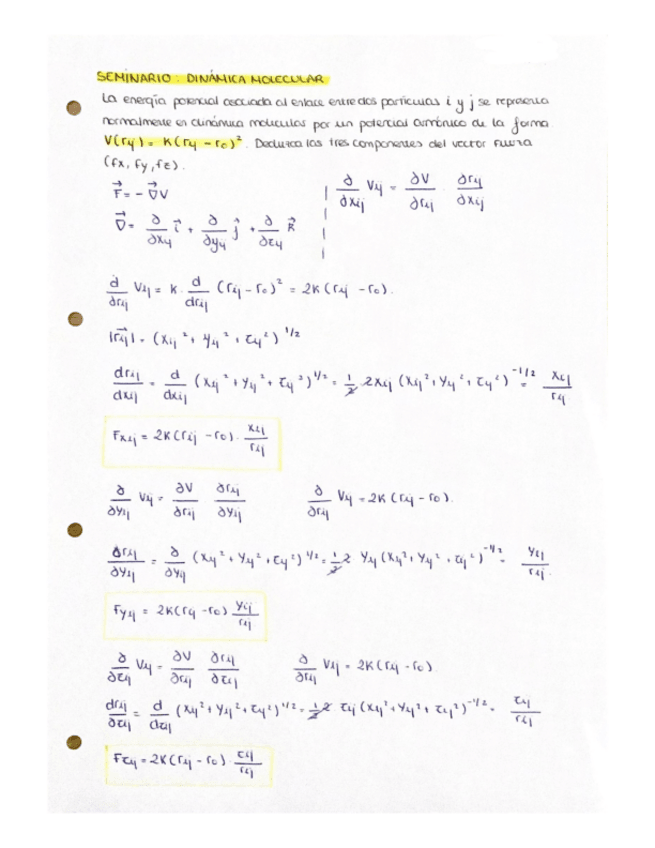 SEMINARIO: DINÁMICA MOLECULAR
La energía potencial asociada al enlace entre dos partículas i y j se representa
normalmente en dinámica molecular por un potencial armónico de la forma
V(rij) = K(rij - r0)². Deduzca las tres componentes del vector fuerza
(fx, fy, fz).
F⃗ = - ∇⃗V | ∂/∂xij Vij = ∂V/∂rij · ∂rij/∂xij
∇⃗ = ∂/∂xij i⃗ + ∂/∂yij j⃗ + ∂/∂zij k⃗
d/drij Vij = K · d/drij (rij - r0)² = 2K(rij - r0).
|r⃗ij| = (xij² + yij² + zij²)^1/2
drij/dxij = d/dxij (xij² + yij² + zij²)^1/2 = 1/2 2xij (xij² + yij² + zij²)^-1/2 = xij/rij
Fxij = 2K(rij - r0) · xij/rij
∂/∂yij Vij = ∂V/∂rij ∂rij/∂yij ∂/∂rij Vij = 2K(rij - r0).
∂rij/∂yij = ∂/∂yij (xij² + yij² + zij²)^1/2 = 1/2 2 yij (xij² + yij² + zij²)^-1/2 = yij/rij.
Fyij = 2K(rij - r0) yij/rij
∂/∂zij Vij = ∂V/∂rij ∂rij/∂zij ∂/∂rij Vij = 2K(rij - r0).
drij/∂zij = d/dzij (xij² + yij² + zij²)^1/2 = 1/2 2 zij (xij² + yij² + zij²)^-1/2 = zij/rij
Fzij = 2K(rij - r0) · zij/rij